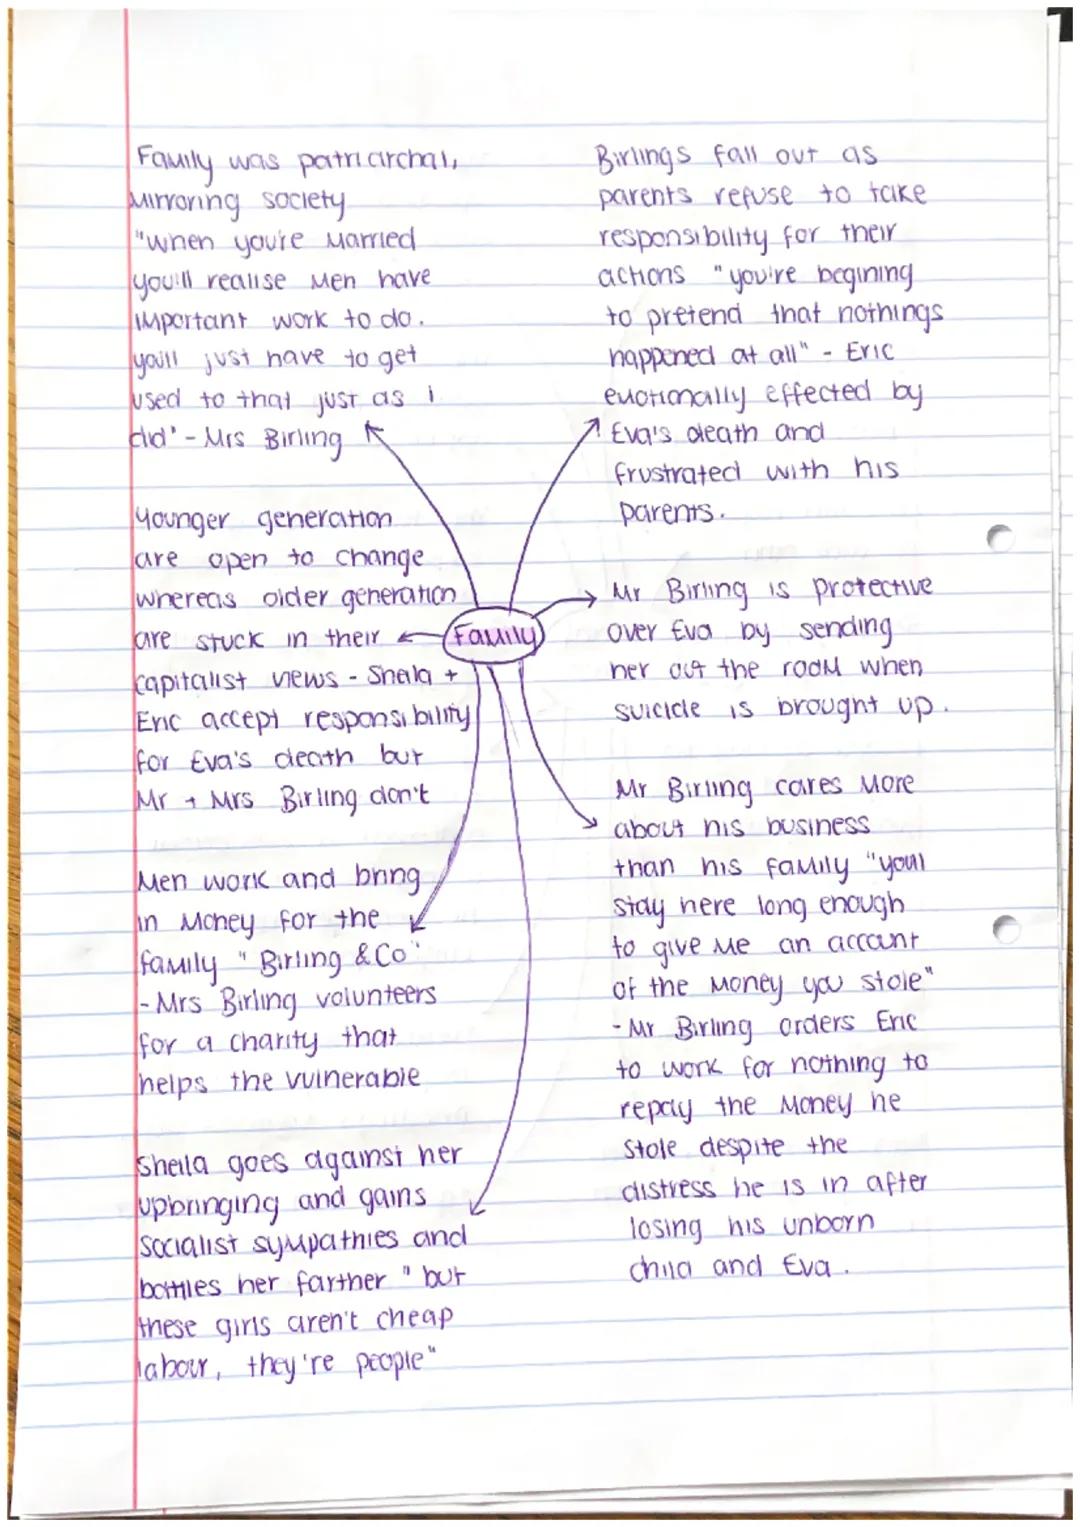 Family was patriarchal,
mirroring society
"when you're married
you'll realise men have
important work to do.
you'll just have to get
used to that just as i
did" - Mrs Birling
Younger generation
are open to change
whereas older generation
are stuck in their
capitalist views - Sheila +
Eric accept responsibility
for Eva's death but
Mr + Mrs Birling don't
Men work and bring
in money for the
family "Birling & Co"
- Mrs Birling volunteers
for a charity that
helps the vulnerable
Sheila goes against her
upbringing and gains
socialist sympathies and
battles her farther "but
these girls aren't cheap
labour, they're people"
Family
Birlings fall out as
parents refuse to take
responsibility for their
actions "you're begining
to pretend that nothings
happened at all" - Eric
emotionally effected by
Eva's death and
frustrated with his
parents.
Mr Birling is protective
over Eva by sending
her out the room when
suicide is brought up.
Mr Birling cares more
about his business
than his family "youl
stay here long enough
to give me an account
of the money you stole"
- Mr Birling orders Eric
to work for nothing to
repay the money he
stole despite the
distress he is in after
losing his unborn
child and Eva.